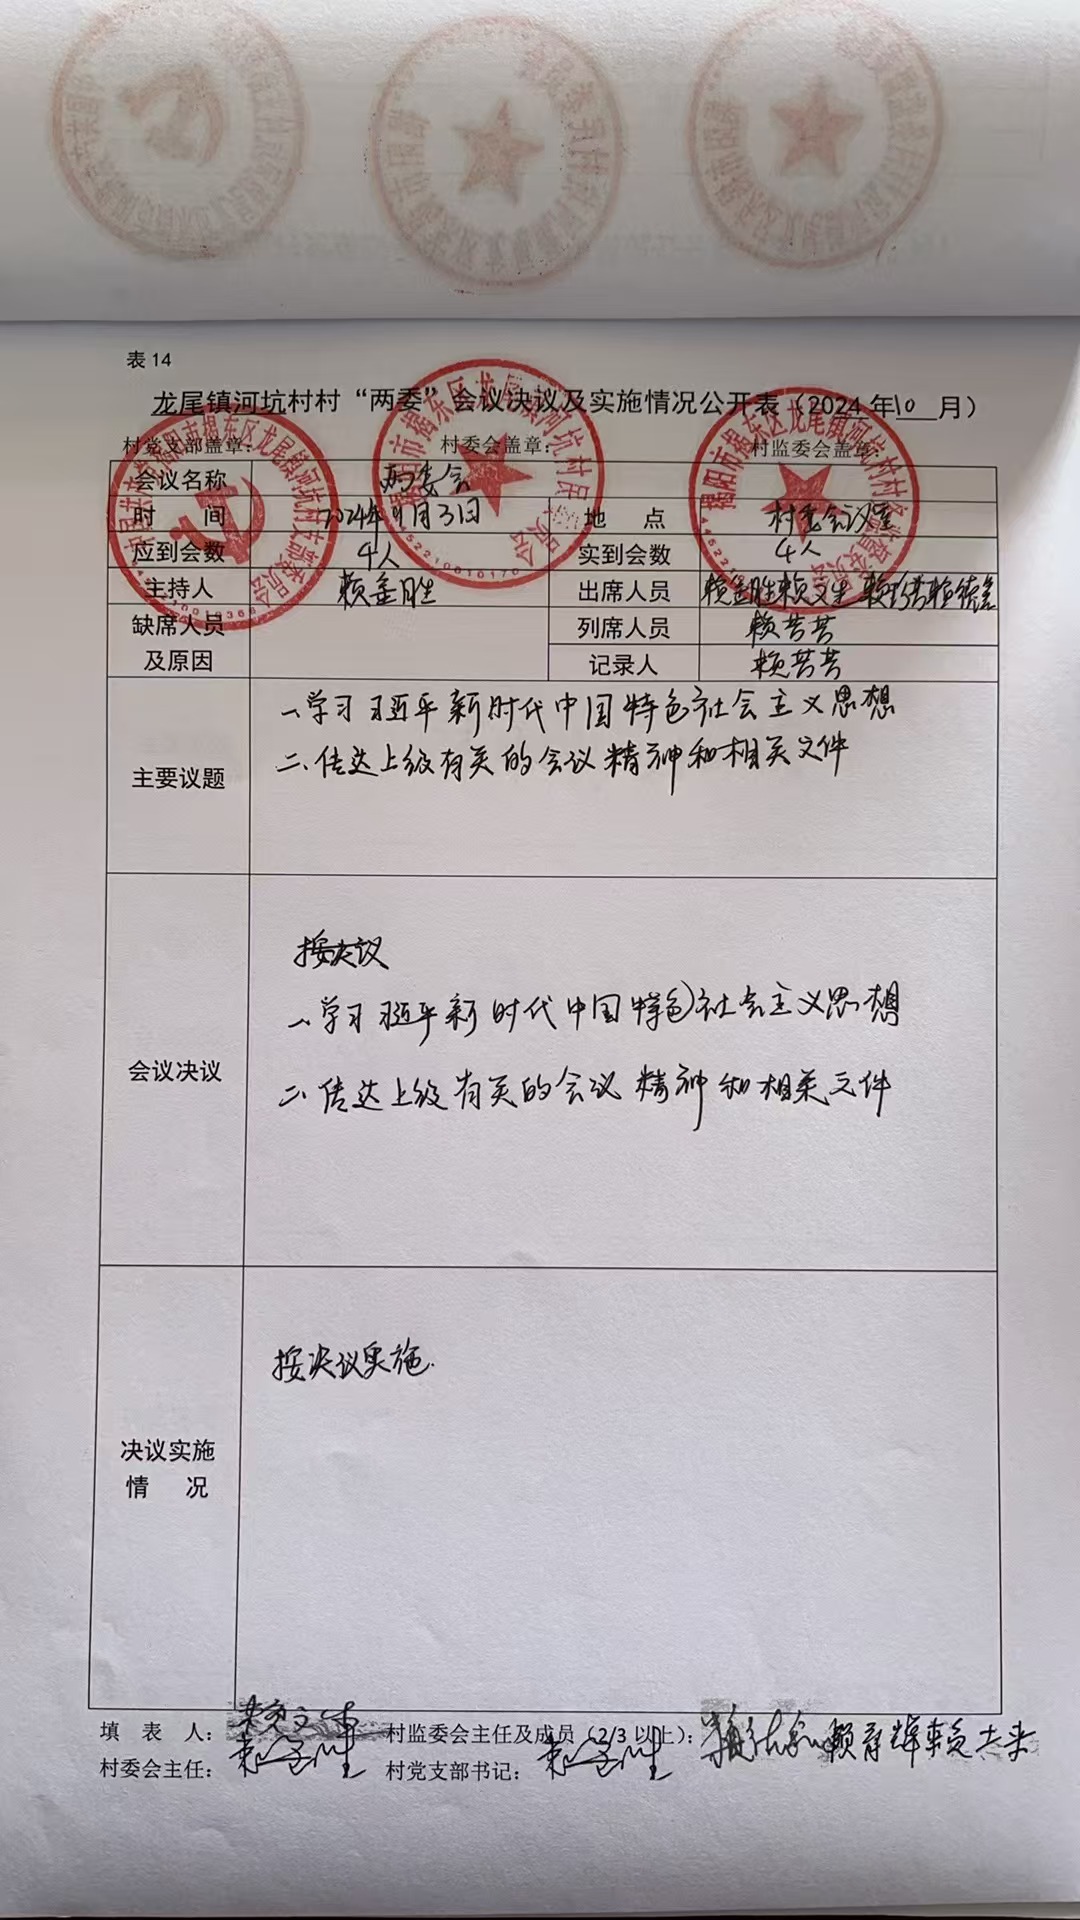 表 14
龙尾镇河坑村村“两委”会议决议及实施情况公开表（2024 年10 月）
村党支部盖章： 村委会盖章： 村监委会盖章：
会议名称 两委会
时 间 2024年 月3日 地 点 村委会议室
应到会数 4人 实到会数 4人
主持人 赖 胜 出席人员 赖 胜 赖文生
缺席人员及原因 列席人员 赖芸芸
记录人 赖芸芸
主要议题
一、学习习近平新时代中国特色社会主义思想
二、传达上级有关的会议精神和相关文件
会议决议
按决议
一、学习习近平新时代中国特色社会主义思想
二、传达上级有关的会议精神和相关文件
决议实施情 况
按决议实施.
填 表 人： 村监委会主任及成员（2/3 以上）：
村委会主任： 村党支部书记：